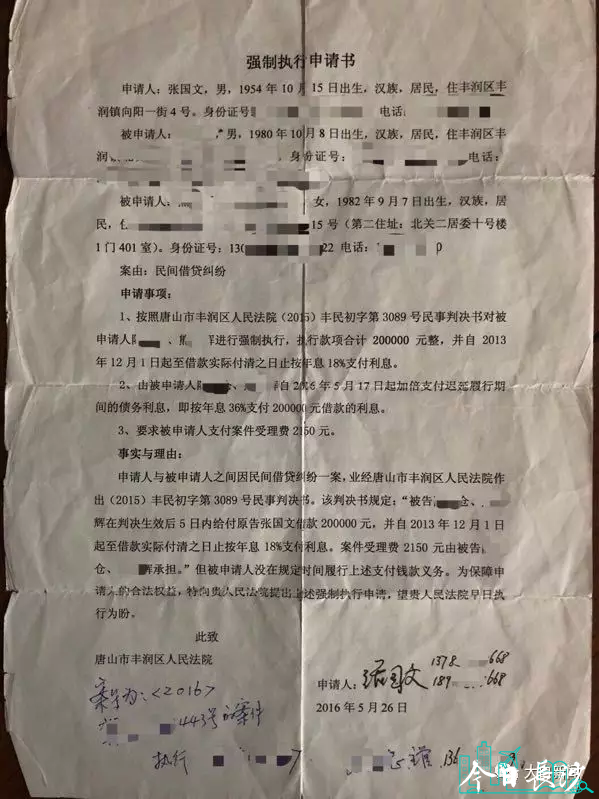 强制执行申请书
申请人：张国文，男，1954年10月15日出生，汉族，居民，住丰润区丰
润镇向阳一街4号。身份证号 电话
被申请人： 男，1980年10月8日出生，汉族，居民，住丰润区丰
润 身份证号： 电话：
被申请人： 女，1982年9月7日出生，汉族，居
民， 15号（第二住址：北关二居委十号楼
1门401室）。身份证号：13 22 电话：
案由：民间借贷纠纷
申请事项：
1、按照唐山市丰润区人民法院（2015）丰民初字第3089号民事判决书对被
申请人 、 进行强制执行，执行款项合计200000元整，并自2013
年12月1日起至借款实际付清之日止按年息18%支付利息。
2、由被申请人 、 自2016年5月17日起加倍支付迟延履行期
间的债务利息，即按年息36%支付200000元借款的利息。
3、要求被申请人支付案件受理费2150元。
事实与理由：
申请人与被申请人之间因民间借贷纠纷一案，业经唐山市丰润区人民法院作
出（2015）丰民初字第3089号民事判决书。该判决书规定：“被告 仓、
辉在判决生效后5日内给付原告张国文借款200000元，并自2013年12月1日
起至借款实际付清之日止按年息18%支付利息。案件受理费2150元由被告
仓、 辉承担。”但被申请人没在规定时间履行上述支付钱款义务。为保障申
请人的合法权益，特向贵人民法院提出上述强制执行申请，望贵人民法院早日执
行为盼。
此致
唐山市丰润区人民法院
申请人：张国文 1378 668
189 668
2016年5月26日
案字为：<2016>
443号的案件
执行
136
今日长沙